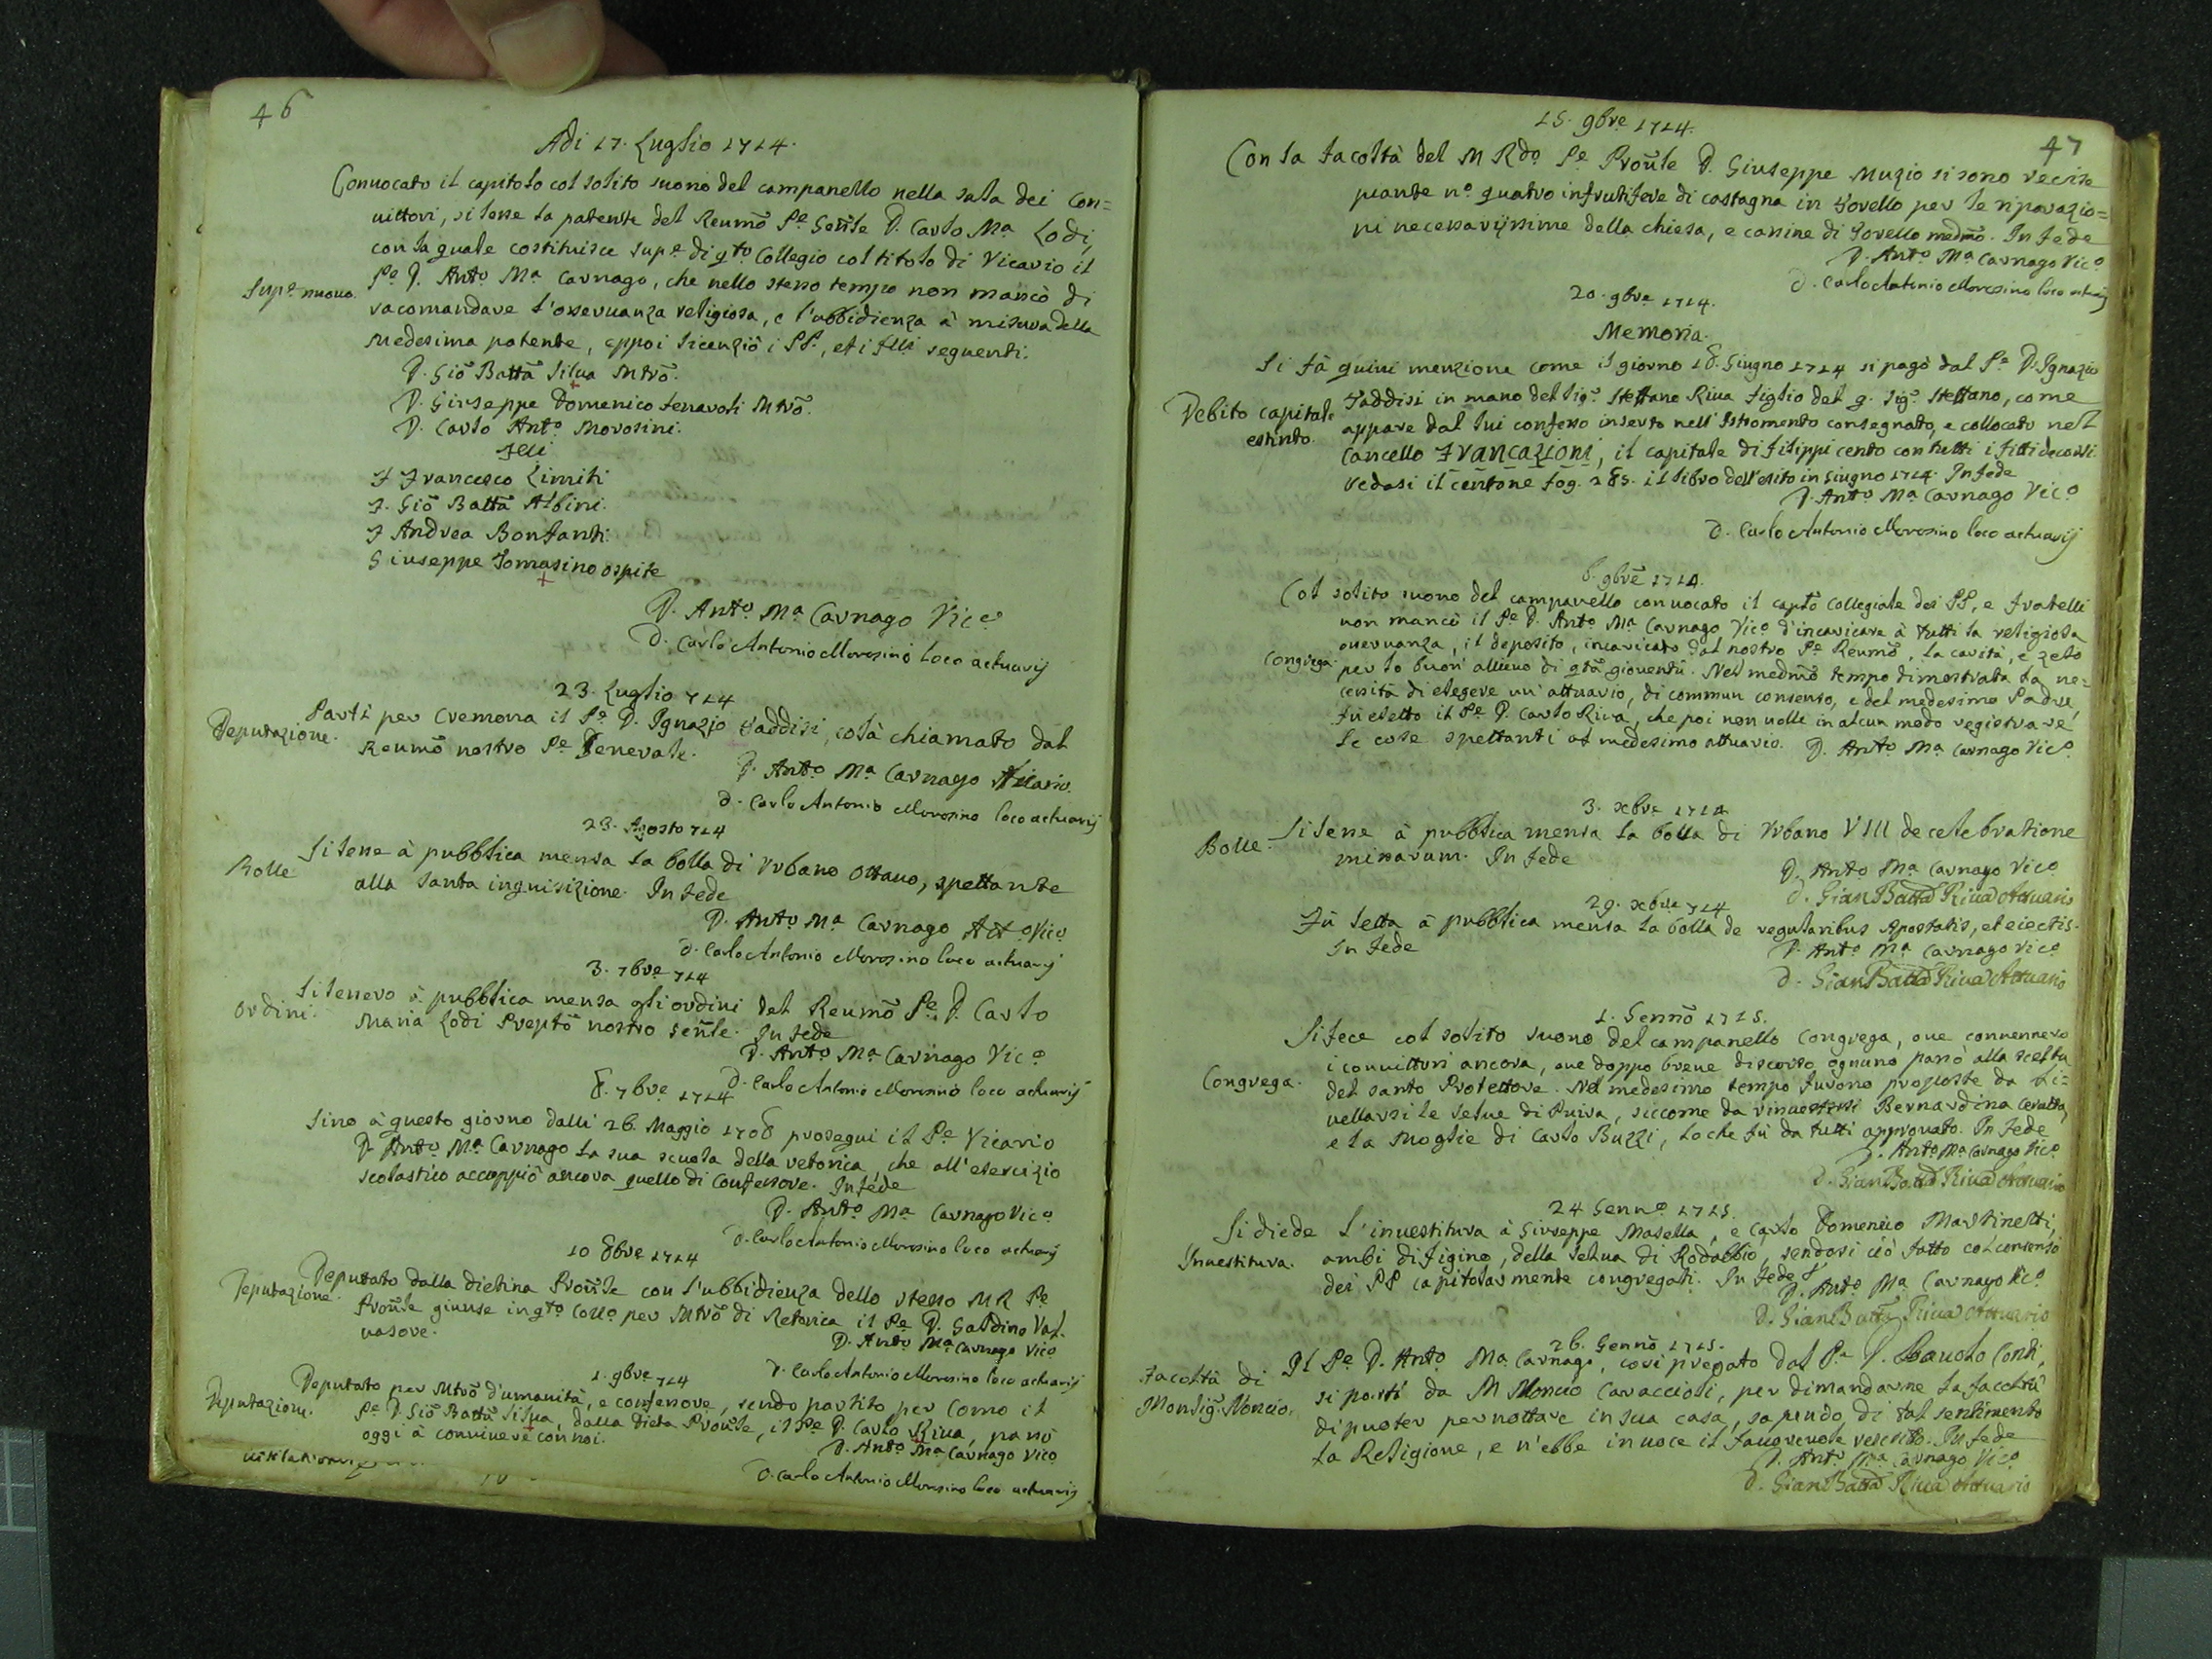 46
Adi 17. Luglio 1714.
Conuocato il capitolo col solito suono del campanello nella sala dei Con=
uittori, si lesse la patente del Reumõ Pe. Gen̄le D. Carlo Ma. Lodi,
con la quale costituisce Supe. di qto. Collegio col titolo di Vicario il
Supe. nuouo. Pe. D. Anto. Ma. Carnago, che nello stesso tempo non mancò di
racomandare l'osseruanza religiosa, e l'ubbidienza à misura della
medesima patente, eppoi licenziò i PP., et i flli seguenti.
D. Giō Battā Silua Mtrō.
D. Giuseppe Domenico Senaroli Mtrō.
D. Carlo Anto. Morosini.
Flli
F Francesco Limiti
F. Giō Battā Albini.
F Andrea Bonfanti.
Giuseppe Tomasino ospite
D. Anto. Ma. Carnago Vico.
D. Carlo Antonio Morosino loco actuarij
23. Luglio 714
Deputazione. Partì per Cremona il Pe. D. Ignazio Taddisi, colà chiamato dal
Reumō nostro Pe Generale.
D. Anto. Ma Carnago Vicario.
D. Carlo Antonio Morosino loco actuarij
23. Agosto 714
Bolle Si lesse à pubblica mensa la bolla di Vrbano Ottauo, spettante
alla Santa inquisizione. In fede
D. Anto Ma Carnago Vico
D. Carlo Antonio Morosino loco actuarij
3. 7bre 714
Ordini. Si lessero à pubblica mensa gli ordini del Reumō Pe. D. Carlo
Maria Lodi Preptō nostro Gen̄le. In fede
D. Anto. Ma Carnago Vico
D. Carlo Antonio Morosino loco actuarij
8. 7bre 1714
Sino à questo giorno dalli 26. Maggio 1708 proseguì il Pe Vicario
D. Anto Ma Carnago la sua scuola della retorica, che all'esercizio
scolastico accoppiò ancora quello di Confessore. In fede
D. Anto Ma Carnago Vico
D. Carlo Antonio Morosino loco actuarij
10 8bre 1714
Deputazione. Deputato dalla dietina Proun̄le con l'ubbidienza dello stesso MR Pe
Proun̄le giunse in qto Collo per Mtrō di Retorica il Pe D. Galdino Val.
uasore.
D. Anto Ma Carnago Vico
D. Carlo Antonio Morosino loco actuarij
1. 9bre 714
Deputazione. Deputato per Mtrō d'umanità, e confessore, sendo partito per Como il
Pe D. Giō Battā Silua, dalla Dieta Proun̄le, il Pe D. Carlo Riua, passò
oggi à conuiuere con noi.
D. Anto Ma Carnago Vico
D. Carlo Antonio Morosino loco actuarij
47
15. 9bre 1714.
Con la facoltà del M Rdo. Pe Proun̄le D. Giuseppe Muzio si sono recise
piante no. quatro infrutifere di castagna in Torello per le riparazio=
ni necessarijssime della chiesa, e cassine di Torello medmō. In fede
D. Anto Ma Carnago Vico
D. Carlo Antonio Morosino loco actuarij
20. 9bre 1714.
Memoria.
Si fà quiui menzione come il giorno 18. Giugno 1714 si pagò dal Pe D. Ignazio
Debito capitale Taddisi in mano del Sigr. Steffano Riua figlio del q. Sigr. Steffano, come
estinto. appare dal lui confesso inserto nell'Istromento consegnato, e collocato nel
Cancello Francazioni, il capitale di filippi cento con tutti i fitti decorsi.
Vedasi il centone fog. 285. il libro dell'esito in Giugno 1714. In fede
D. Anto Ma Carnago Vico
D. Carlo Antonio Morosino loco actuarij
6. 9bre 1714.
Col solito suono del campanello conuocato il captō Collegiale dei PP, e fratelli
non mancò il Pe D. Anto Ma Carnago Vico d'incaricare à tutti la religiosa
osseruanza, il deposito, incaricato dal nostro Pe Reumō, la carità, e zelo
Congrega. per lo buon' allieuo di qtā giouentù. Nel medmō tempo dimostrata la ne=
cessità di elegere un' attuario, di commun consenso, e del medesimo Padre,
fù eletto il Pe D. Carlo Riva, che poi non uolle in alcun modo registrare
le cose spettanti al medesimo attuario. D. Anto Ma Carnago Vico
3. xbre 1714
Bolle. Si lesse à pubblica mensa la bolla di Vrbano VIII de celebratione
missarum. In fede
D. Anto Ma Carnago Vico
D. Gian Battā Riua Attuario
29. xbre 714
Fù letta à pubblica mensa la bolla de regularibus Apostatis, et eiectis.
In fede
D. Anto Ma Carnago Vico
D. Gian Battā Riua Attuario
1. Gennō 1715.
Si fece col solito suono del campanello Congrega, oue conuennero
i conuittori ancora, oue doppo breue discorso ognuno passò alla scelta
Congrega. del santo Protettore. Nel medesimo tempo furono proposte da li=
uellarsi le selue di Puira, siccome da rinuestirsi Bernardina Ceratta,
e la moglie di Carlo Buzzi, lo che fù da tutti approuato. In fede
D. Anto Ma Carnago Vico
D. Gian Battā Riua Attuario
24 Genno 1715.
Si diede l'inuestitura à Giuseppe Masella, e Carlo Domenico Martinetti,
Inuestitura. ambi di figino, della selua di Rodabbio, sendosi ciò fatto col consenso
dei PP capitolarmente congregati. In fede
D. Anto Ma Carnago Vico
D. Gian Battā Riua Attuario
26. Gennō 1715.
Facoltà di Il Pe D. Anto Ma Carnago, così pregato dal Pe D. Paolo Conti,
Monsigr. Noncio. si portò da M Noncio Caraccioli, per dimandarne la facoltà
di puoter pernottare in sua casa, sapendo di tal sentimento
la Religione, e n'ebbe in uoce il fauoreuole rescritto. In fede
D. Anto Ma Carnago Vico
D. Gian Battā Riua Attuario